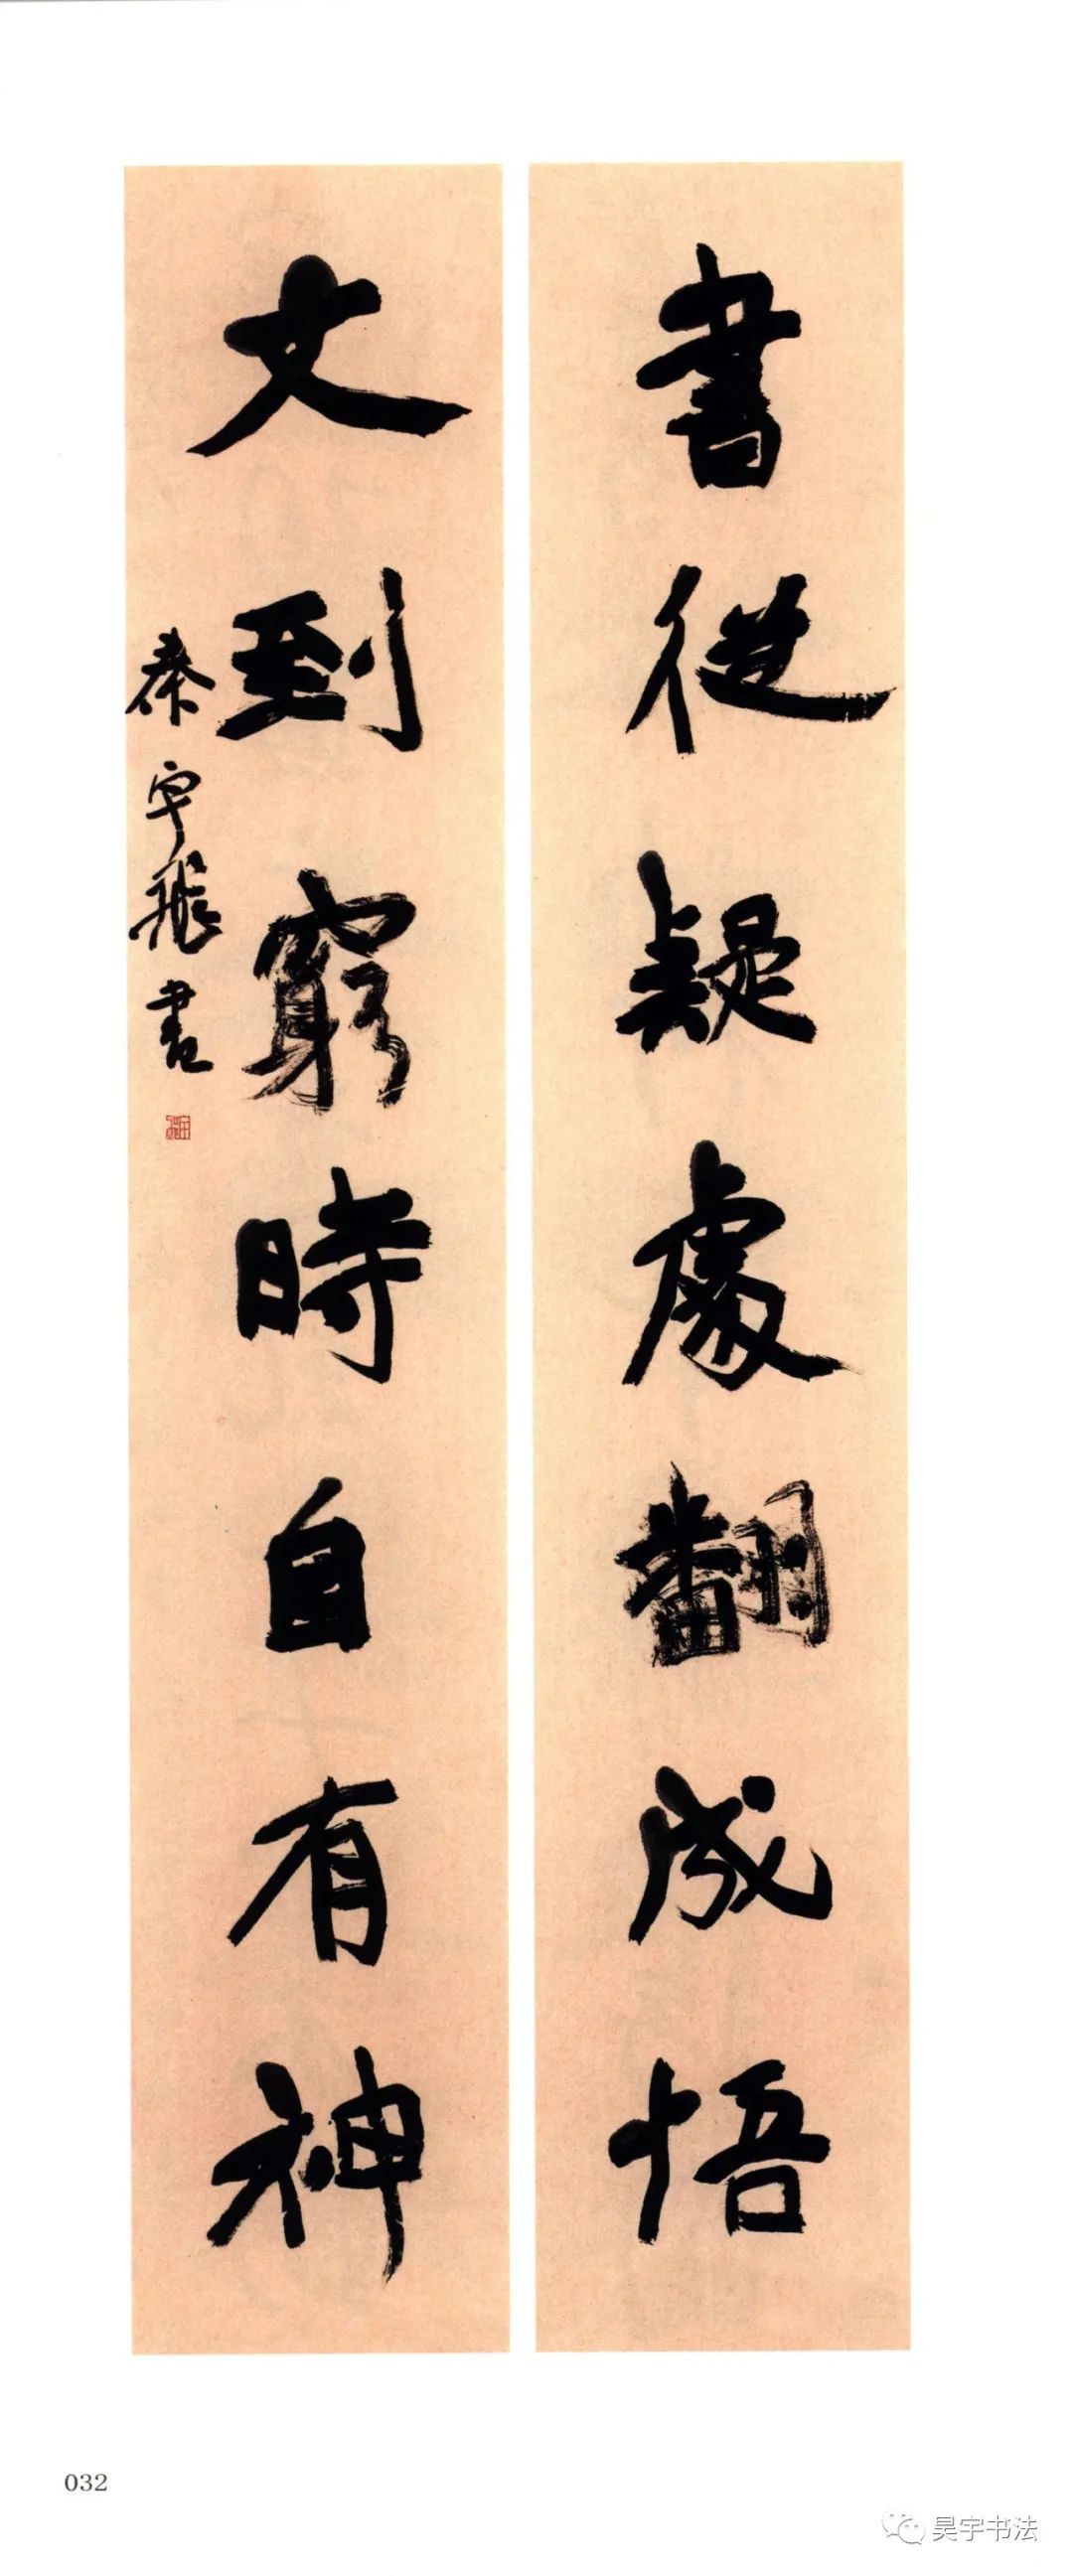 書從疑處翻成悟
文到窮時自有神
秦宇飛書
032
昊宇书法